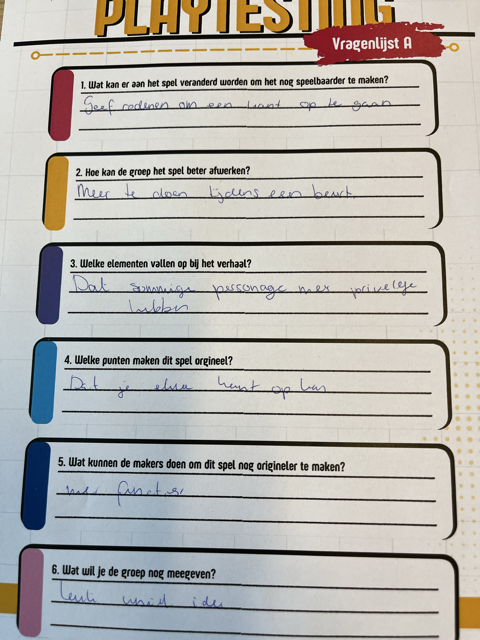 PLAYTESTING
Vragenlijst A
1. Wat kan er aan het spel veranderd worden om het nog speelbaarder te maken?
Geef redenen om een kant op te gaan
2. Hoe kan de groep het spel beter afwerken?
Meer te doen tijdens een beurt.
3. Welke elementen vallen op bij het verhaal?
Dat sommige personage meer privelege
hebben
4. Welke punten maken dit spel orgineel?
Dat je elke kant op kan
5. Wat kunnen de makers doen om dit spel nog origineler te maken?
meer functies
6. Wat wil je de groep nog meegeven?
Leuk idee